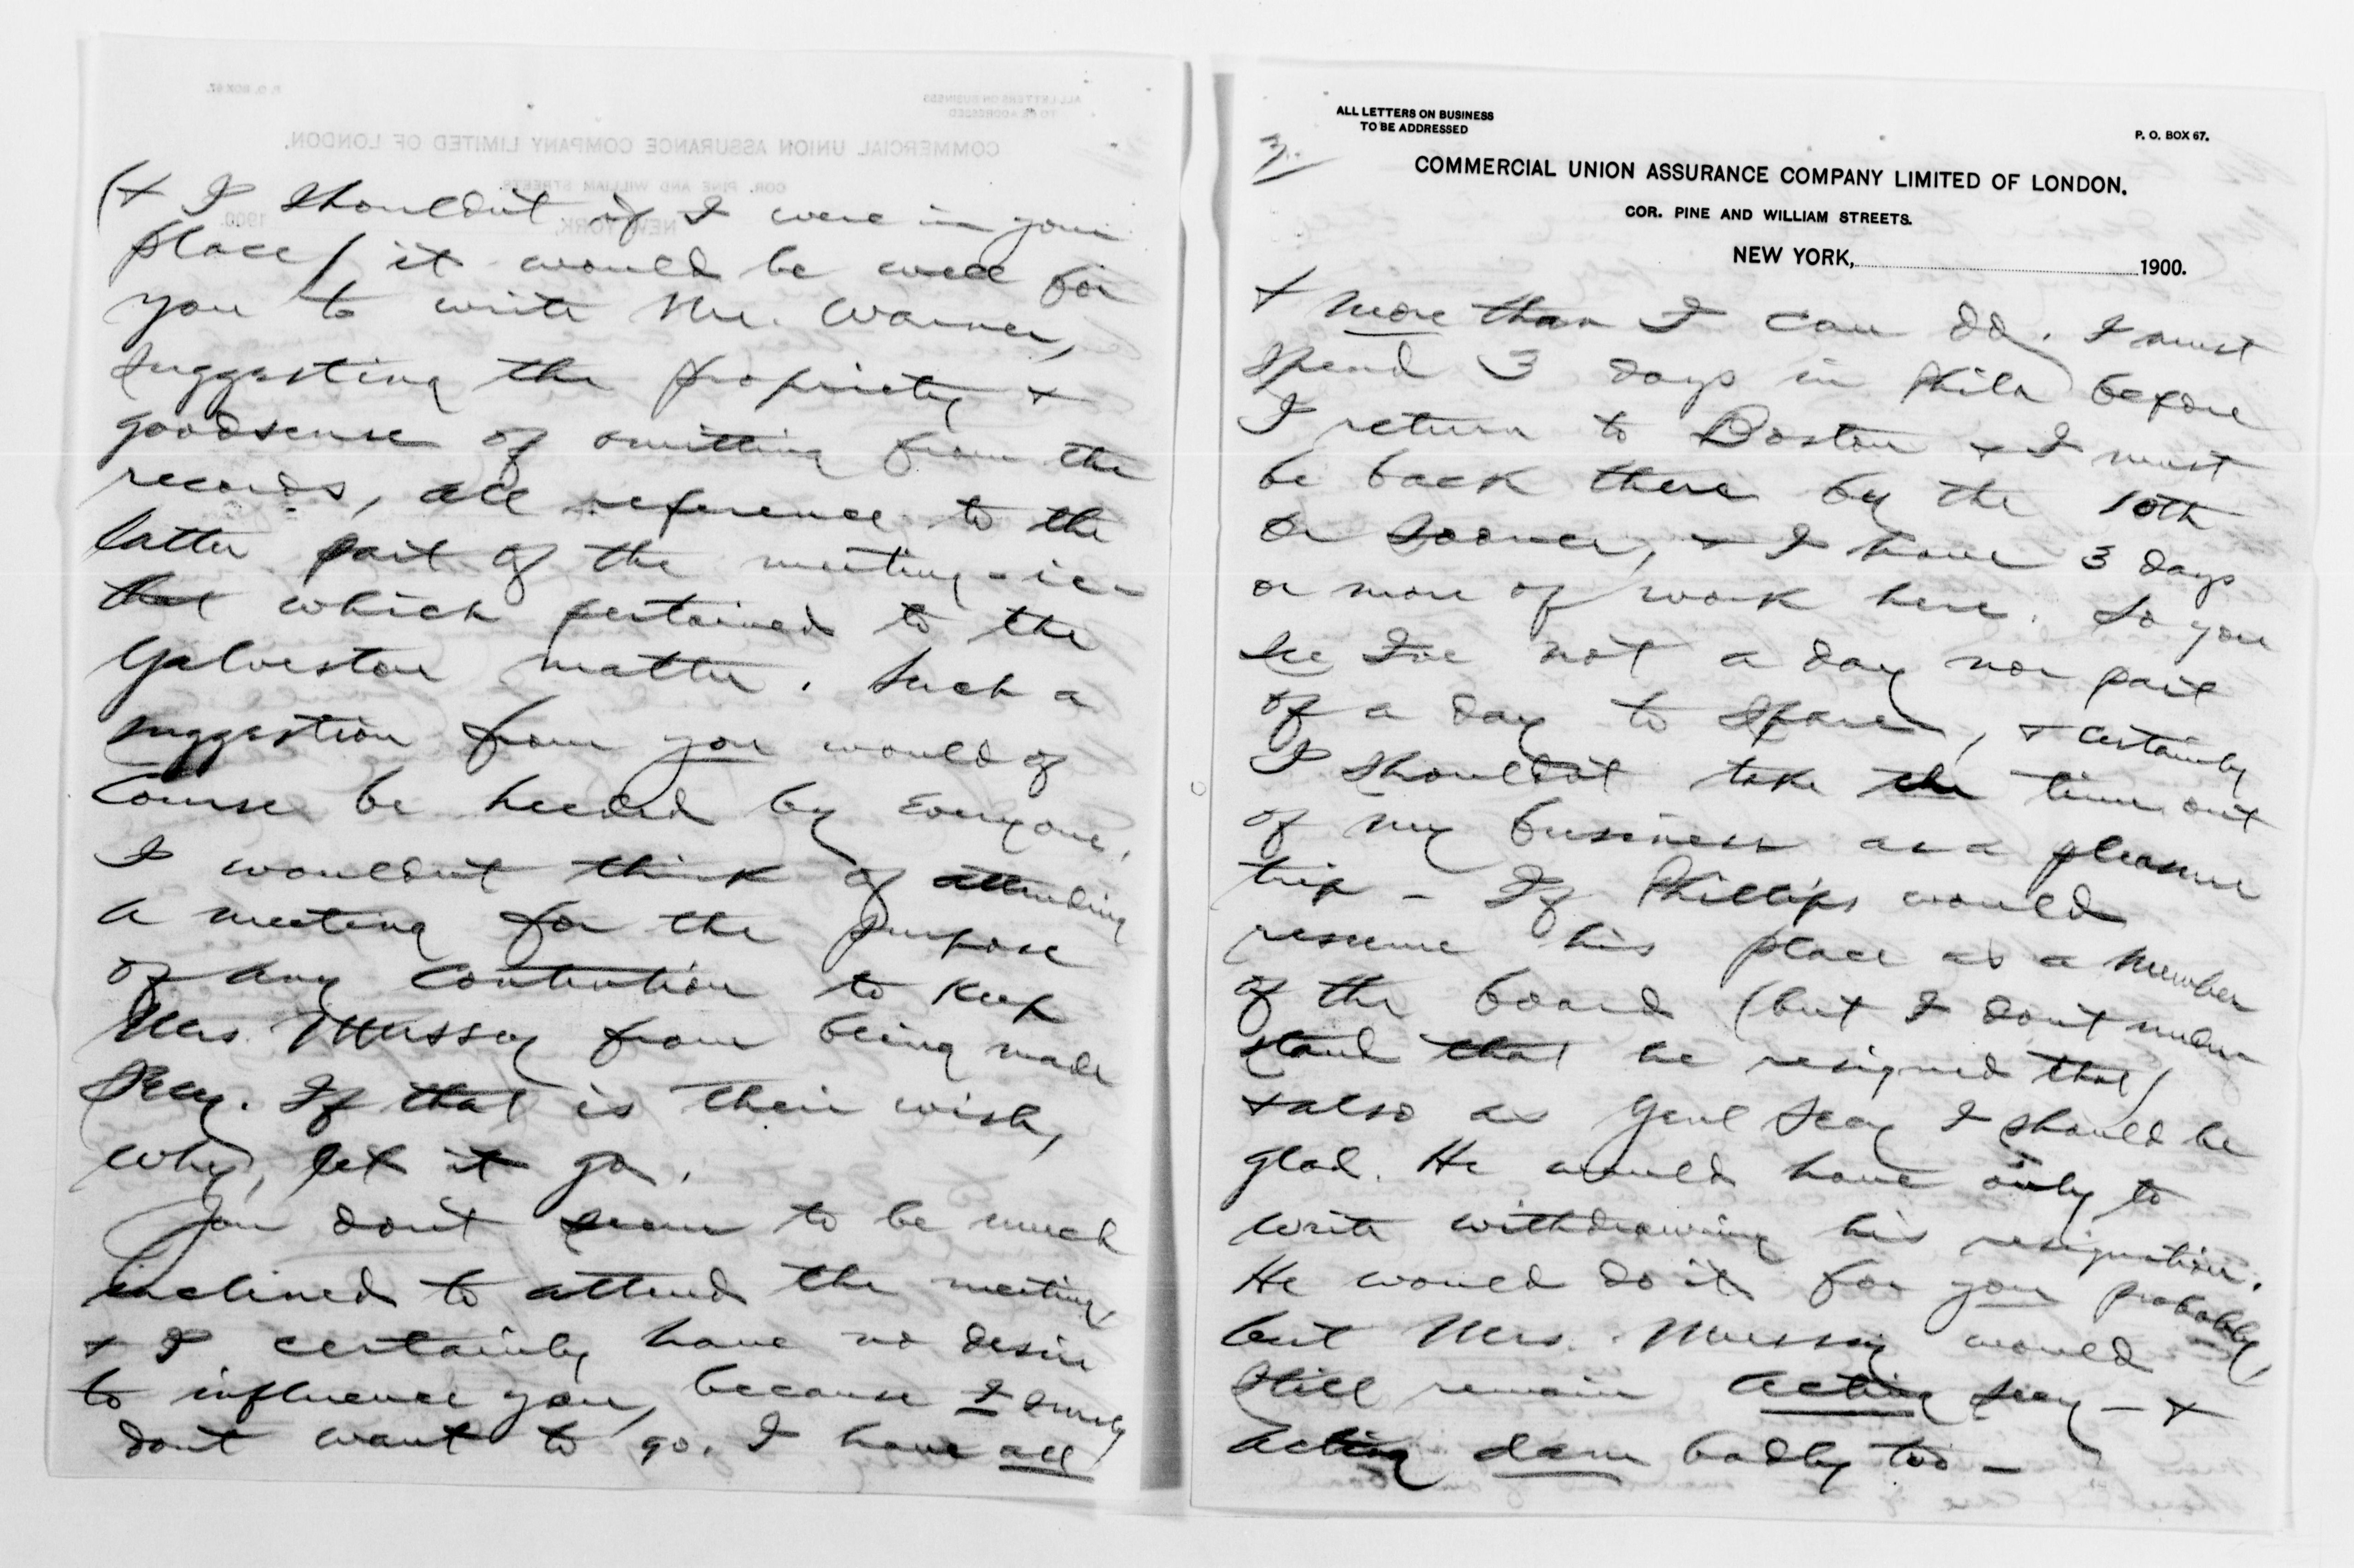 (& I shouldn't if I were in your
place) it would be well for
you to write Mr. Warner,
suggesting the propriety &
goodsense of omitting from the
records, all reference to the
latter part of the meeting - ie -
that which pertained to the
Galveston matter. Such a
suggestion from you would of
course be heeded by everyone.
I wouldn't think of attending
a meeting for the purpose
of any contention to keep
Mrs. Mussey from being made
Secy. If that is their wish,
why, let it go.
You don't seem to be much
inclined to attend the meeting,
& I certainly have no desire
to influence you, because I surely
don't want to go. I have all
ALL LETTERS ON BUSINESS
TO BE ADDRESSED
P. O. BOX 67.
3.
COMMERCIAL UNION ASSURANCE COMPANY LIMITED OF LONDON.
COR. PINE AND WILLIAM STREETS.
NEW YORK, 1900.
& more than I can do. I must
spend 3 days in Phila before
I return to Boston & I must
be back there by the 10th
or sooner, & I have 3 days
or more of work here. So you
see I've not a day nor part
of a day to spare, & certainly
I shouldn't take the time out
of my business as a pleasure
trip - If Phillips would
resume his place as a member
of the board (but I don't under-
stand that he resigned that)
& also as Genl Secy I should be
glad. He would have only to
write withdrawing his resignation.
He would do it for you probably,
but Mrs. Mussey would
still remain acting Secy - &
acting dam badly too -